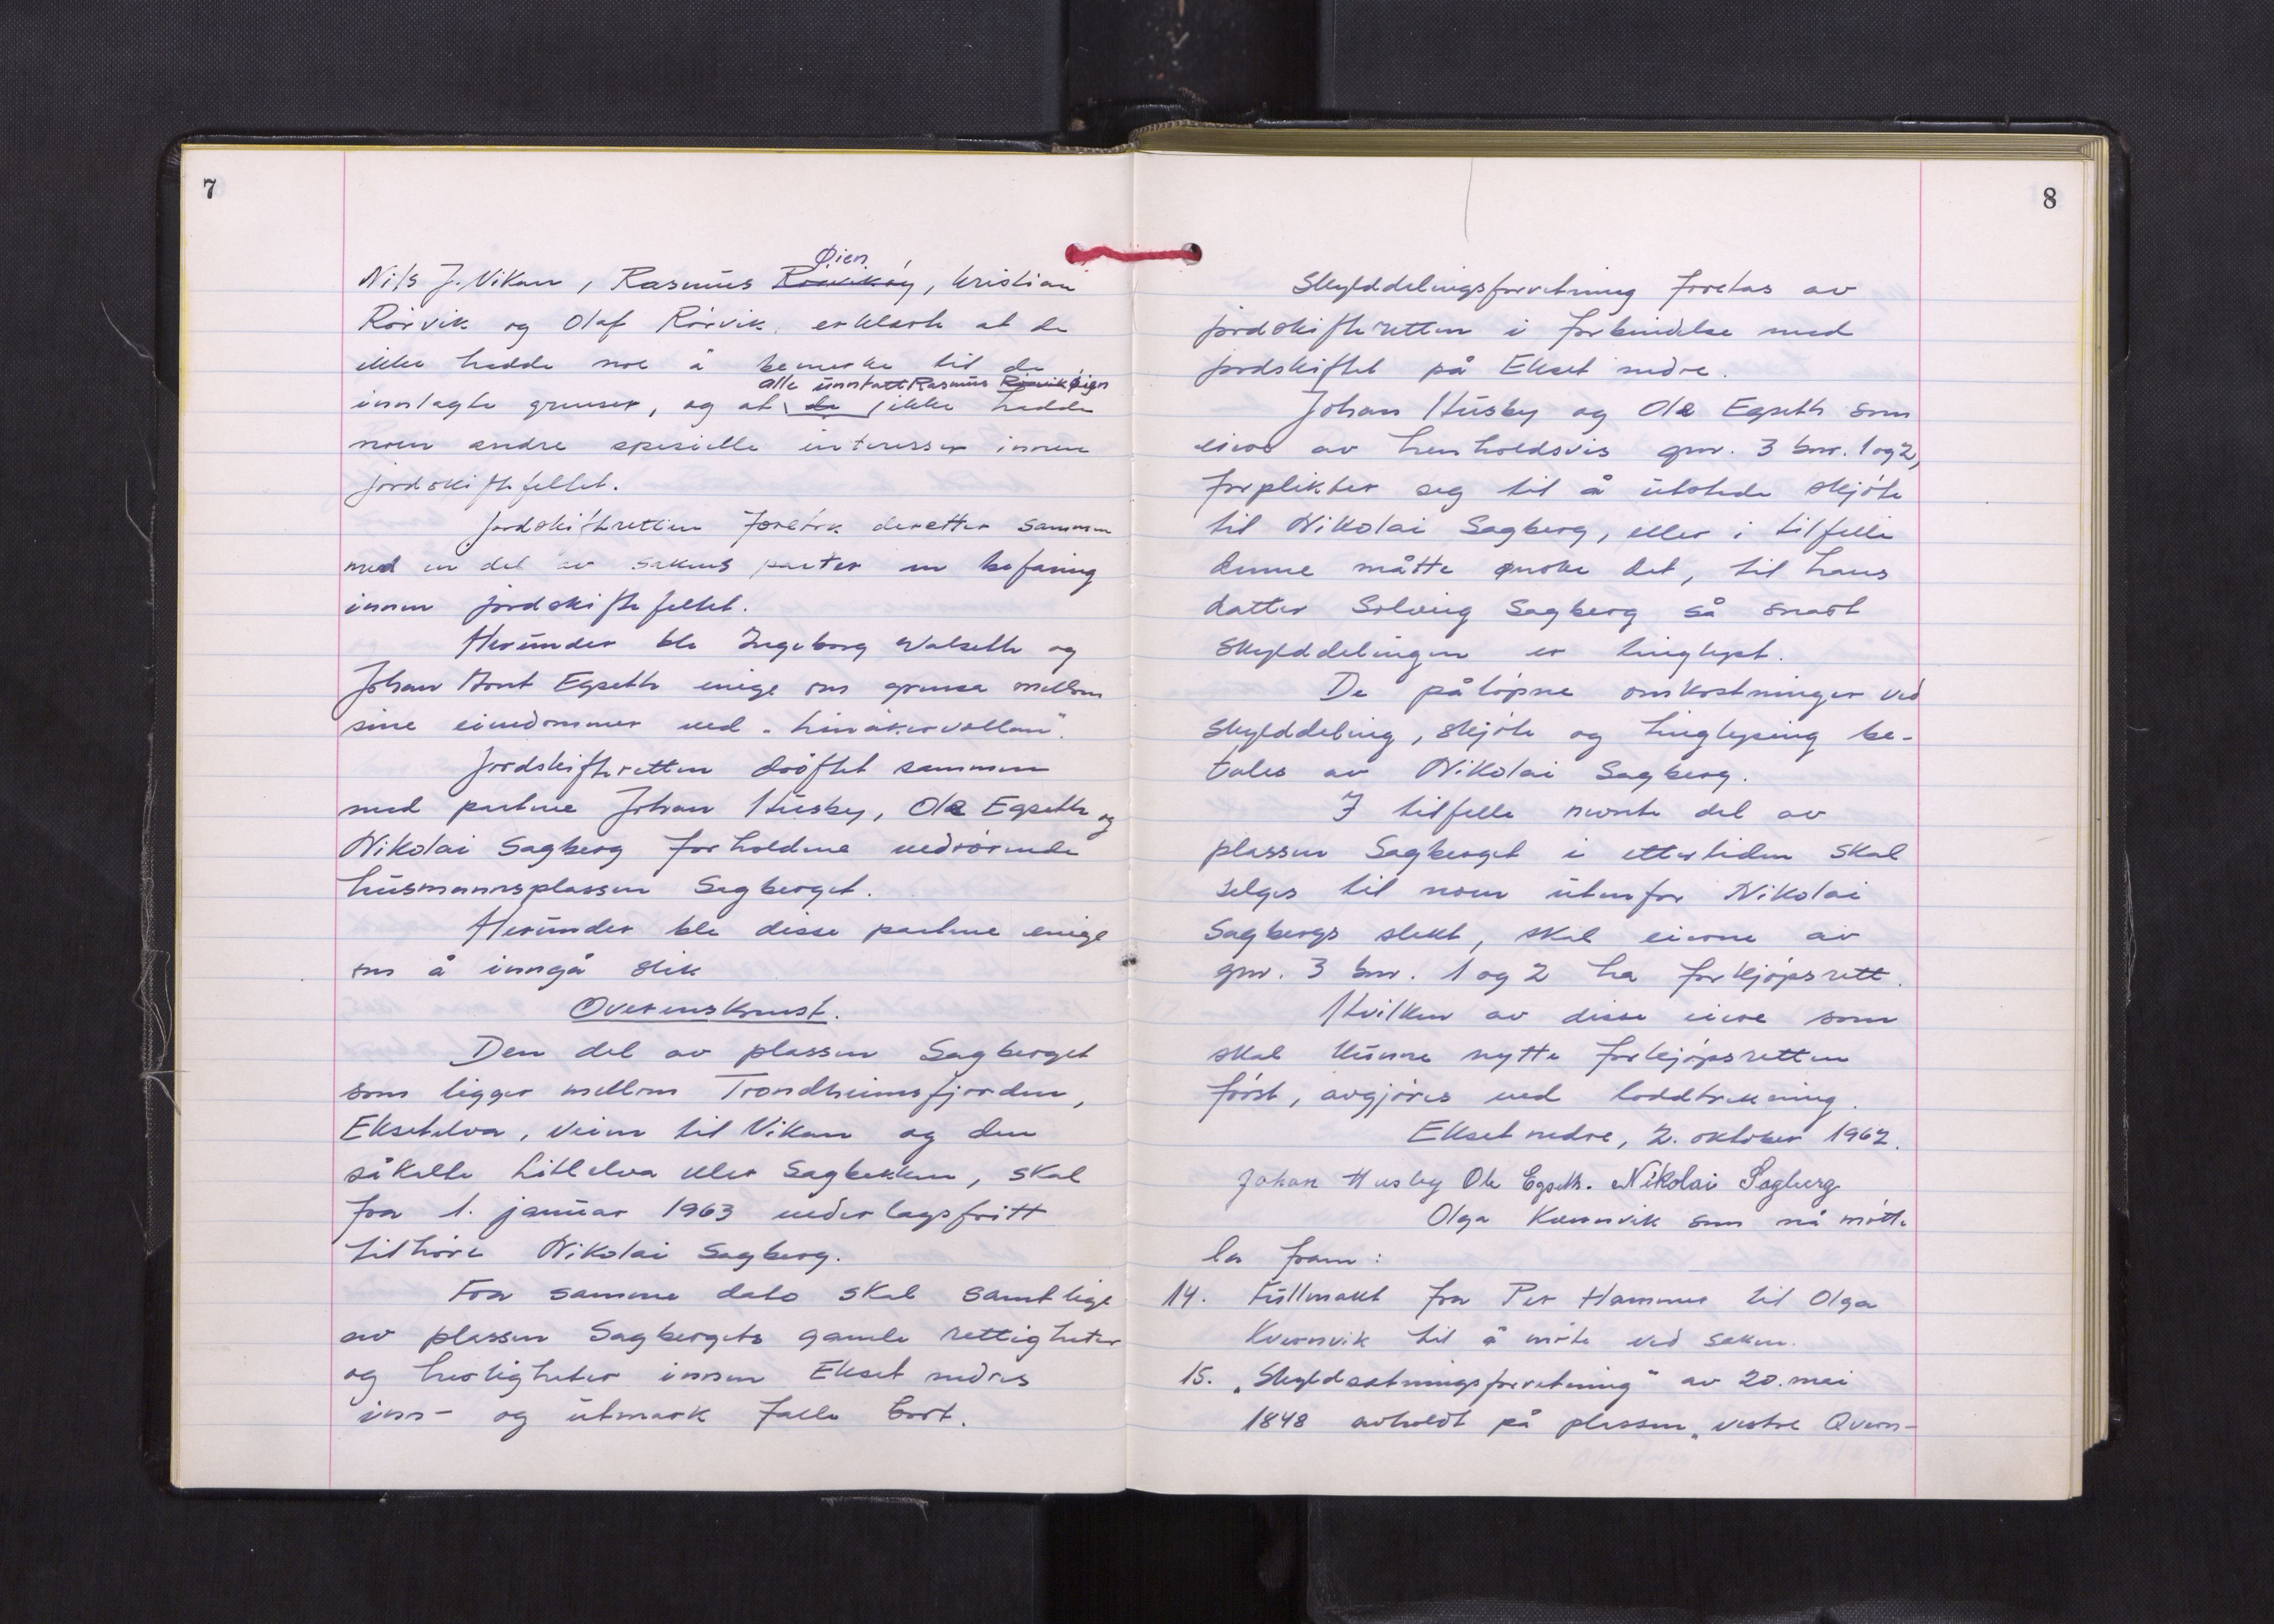 7
Øien
Nils J. Vikan, Rasmus Rörvik og, Kristian
Rörvik og Olaf Rörvik, erklärte at de
ikke hadde noe å bemerke til de
alle unntatt Rasmus Rörvik Øien
innlagte grenser, og at de ikke hadde
noen andre spesielle interesser innen
jordskiftefeltet.
Jordskifteretten foretok deretter sammen
med en del av sakens parter en befaring
innen jordskiftefeltet.
Herunder ble Ingeborg Valseth og
Johan Arnt Egseth enige om grense mellom
sine eiendommer ved „Linåkervollan".
Jordskifteretten dröftet sammen
med partene Johan Husby, Ole Egseth og
Nikolai Sagberg forholdene vedrörende
husmannsplassen Sagberget.
Herunder ble disse partene enige
om å inngå slik
Overenskomst.
Den del av plassen Sagberget
som ligger mellom Trondheimsfjorden,
Eksetelva, veien til Vikan og den
såkalte Litlelva eller Sagbekken, skal
fra 1. januar 1963 vederlagsfritt
tilhöre Nikolai Sagberg.
Fra samme dato skal samtlige
av plassen Sagbergets gamle rettigheter
og herligheter innen Ekset nedres
inn- og utmark falle bort.
8
Skylddelingsforretning foretas av
jordskifteretten i forbindelse med
jordskiftet på Ekset nedre.
Johan Husby og Ole Egseth som
eiere av henholdsvis gnr. 3 bnr. 1 og 2,
forplikter seg til å utstede skjöte
til Nikolai Sagberg, eller i tilfelle
denne måtte ønske det, til hans
datter Solveig Sagberg så snart
skylddelingen er tinglyst.
De pålöpne omkostninger ved
skylddeling, skjöte og tinglysing be-
tales av Nikolai Sagberg.
I tilfelle nevnte del av
plassen Sagberget i ettertiden skal
selges til noen utenfor Nikolai
Sagbergs slekt, skal eierne av
gnr. 3 bnr. 1 og 2 ha forkjöpsrett.
Hvilken av disse eiere som
skal kunne nytte forkjöpsretten
först, avgjöres ved loddtrekning.
Ekset nedre, 2. oktober 1962.
Johan Husby Ole Egseth. Nikolai Sagberg
Olga Kvernvik som nå mötte
la fram:
14. Fullmakt fra Per Hammer til Olga
Kvernvik til å möte ved saken.
15. „Skyldsetningsforretning" av 20. mai
1848 avholdt på plassen „vestre Qvern-